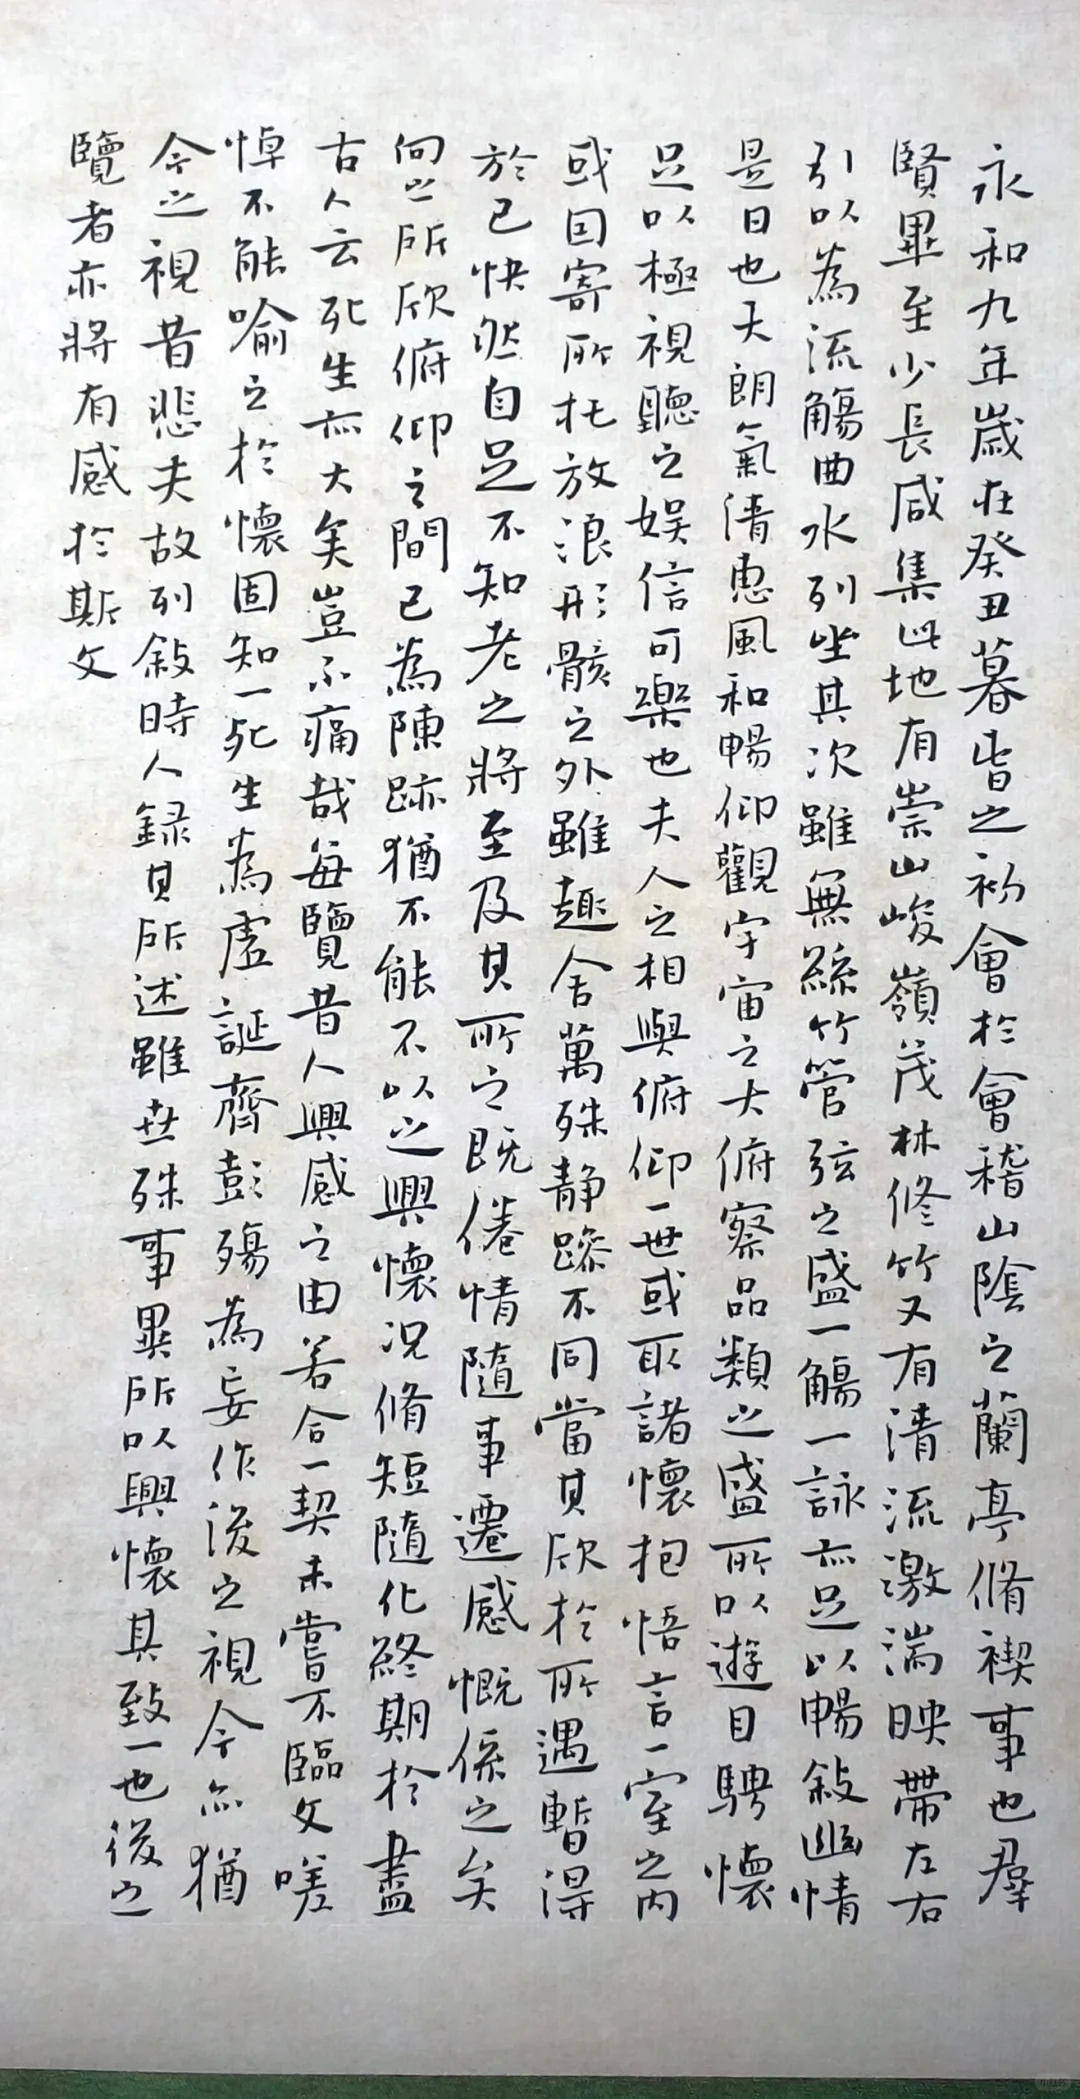 永和九年歲在癸丑暮春之初會於會稽山陰之蘭亭脩禊事也群
賢畢至少長咸集此地有崇山峻嶺茂林修竹又有清流激湍映帶左右
引以為流觴曲水列坐其次雖無絲竹管弦之盛一觴一詠亦足以暢敘幽情
是日也天朗氣清惠風和暢仰觀宇宙之大俯察品類之盛所以遊目騁懷
足以極視聽之娛信可樂也夫人之相與俯仰一世或取諸懷抱悟言一室之內
或因寄所托放浪形骸之外雖趣舍萬殊靜躁不同當其欣於所遇暫得
於己快然自足不知老之將至及其所之既倦情隨事遷感慨係之矣
向之所欣俯仰之間已為陳跡猶不能不以之興懷況脩短隨化終期於盡
古人云死生亦大矣豈不痛哉每覽昔人興感之由若合一契未嘗不臨文嗟
悼不能喻之於懷固知一死生為虛誕齊彭殤為妄作後之視今亦猶
今之視昔悲夫故列敘時人錄其所述雖世殊事異所以興懷其致一也後之
覽者亦將有感於斯文